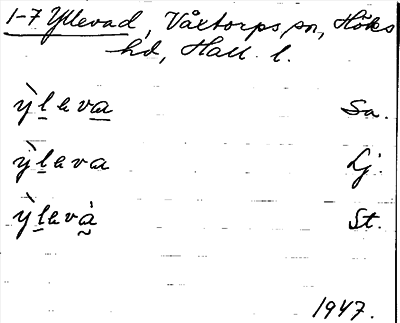 1-7 Yllevad, Våxtorps sn, Höks
hd, Hall. l.
ỳlava Sa.
ỳlava Lj.
ỳlavà St.
1947.